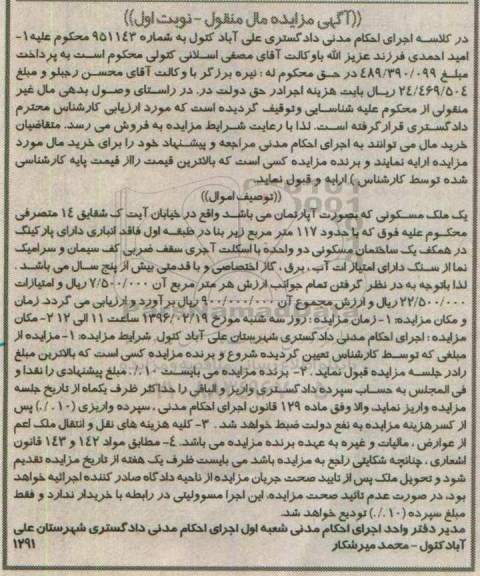 ((آگهی مزایده مال منقول -نوبت اول))
در کلاسه اجرای احکام مدنی دادگستری علی آباد کتول به شماره ۹۵۱۱۴۳ محکوم علیه۱-
امید احمدی فرزند عزیز الله باوکالت آقای مصفی اسلانی کتولی محکوم است به پرداخت
مبلغ ۴۸۹/۳۹۰/۰۹۹ در حق محکوم له : نیره برزگر با وکالت آقای محسن رجبلو و مبلغ
۲۴/۴۶۹/۵۰۴ ریال بابت هزینه اجرادر حق دولت در. در راستای وصول بدهی مال غیر
منقولی از محکوم علیه شناسایی وتوقیف گردیده است که مورد ارزیابی کارشناس محترم
دادگستری قرارگرفته است. لذا با رعایت شرایط مزایده به فروش می رسد. متقاضیان
خرید مال می توانند به اجرای احکام مدنی مراجعه و پیشنهاد خود را برای خرید مال مورد
مزایده ارایه نمایند و برنده مزایده کسی است که بالاترین قیمت رااز قیمت پایه کارشناسی
شده توسط کارشناس ) ارایه و قبول نماید.
((توصیف اموال))
یک ملک مسکونی که بصورت آپارتمان می باشد واقع در خیابان آیت ک شقایق ۱۴ متصرفی
محکوم علیه فوق که با حدود ۱۱۷ متر مربع زیر بنا در طبقه اول فاقد انباری دارای پارکینگ
در همکف یک ساختمان مسکونی دو واحده با اسکلت آجری سقف ضربی کف سیمان و سرامیک
نما از سنگ دارای امتیازات آب، برق ، گاز اختصاصی و با قدمتی بیش از پنج سال می باشد .
لذا باتوجه به در نظر گرفتن تمام جوانب ارزش هر متر مربع آن ۷/۵۰۰/۰۰۰ ریال و امتیازات
۲۲/۵۰۰/۰۰۰ ریال و ارزش مجموع آن ۹۰۰/۰۰۰/۰۰۰ ریال بر آورد و ارزیابی می گردد زمان
و مکان مزایده: ۱- زمان مزایده : روز سه شنبه مورخ ۱۳۹۶/۰۲/۱۹ ساعت ۱۱ الی ۱۲ ۲- مکان
مزایده : اجرای احکام مدنی دادگستری شهرستان علی آباد کتول. شرایط مزایده: ۱- مزایده از
مبلغی که توسط کارشناس تعیین گردیده شروع و برنده مزایده کسی است که بالاترین مبلغ
رادر جلسه مزایده قبول نماید . ۲- برنده مزایده می بایست ۱۰٪ مبلغ پیشنهادی را نقدا و
فی المجلس به حساب سپرده دادگستری واریز و الباقی را حداکثر ظرف یکماه از تاریخ جلسه
مزایده واریز نماید، والا وفق ماده ۱۲۹ قانون اجرای احکام مدنی ، سپرده واریزی (۱۰٪) پس
از کسرهزینه مزایده به نفع دولت ضبط خواهد شد . ۳- کلیه هزینه های نقل و انتقال ملک اعم
از عوارض ، مالیات و غیره به عهده برنده مزایده می باشد. ۴- مطابق مواد ۱۴۲ و ۱۴۳ قانون
اشعاری ، چنانچه شکایتی راجع به مزایده باشد می بایست ظرف یک هفته از تاریخ مزایده تقدیم
شود و تحویل ملک پس از تایید صحت جریان مزایده از ناحیه دادگاه صادر کننده اجرائیه خواهد
بود، در صورت عدم تائید صحت مزایده، این اجرا مسوولیتی در رابطه با خریدار ندارد و فقط
مبلغ سپرده (۱۰٪) تودیع خواهد شد.
مدیر دفتر واحد اجرای احکام مدنی شعبه اول اجرای احکام مدنی دادگستری شهرستان علی
آبادکتول - محمد میرشکار ۱۲۹۱